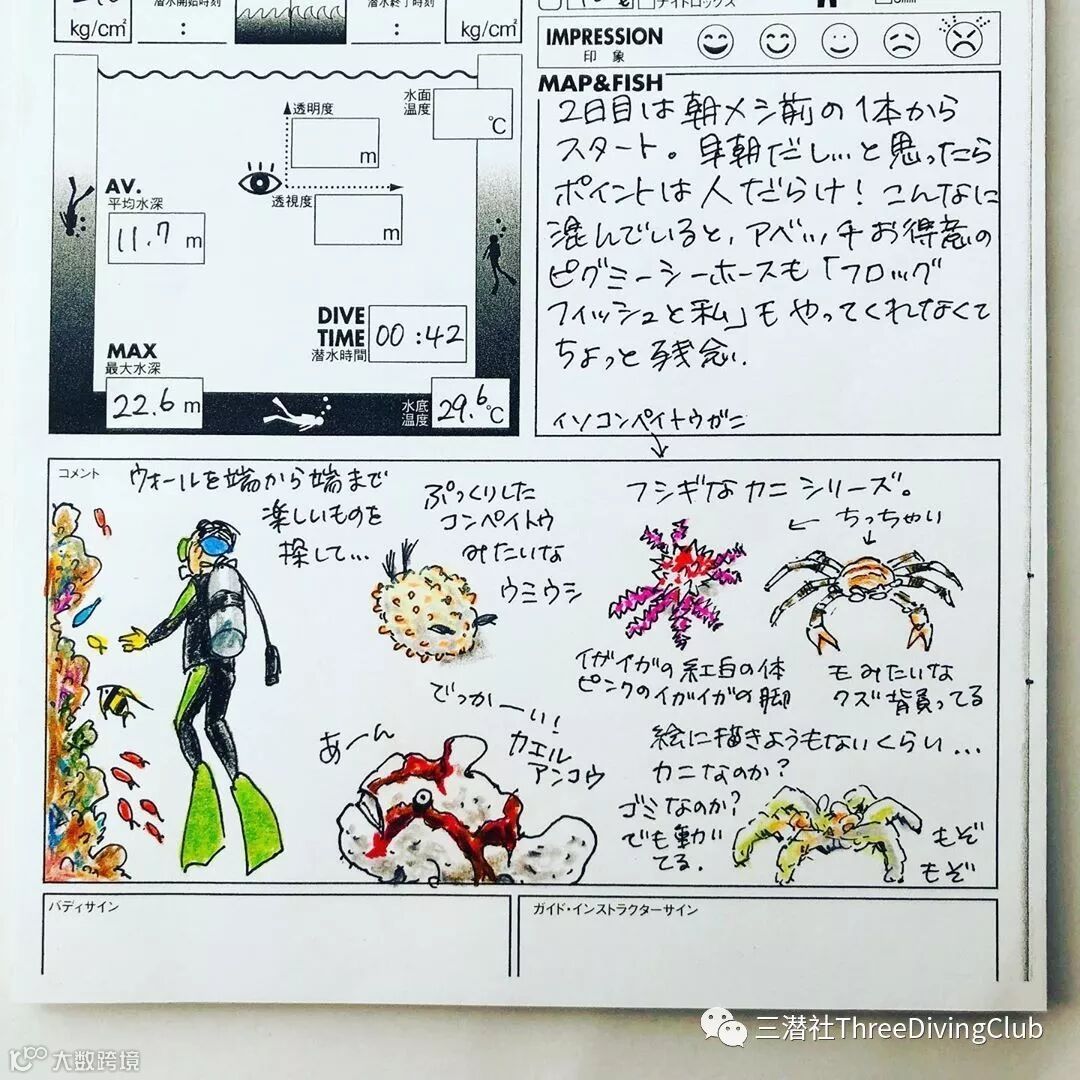 潜水開始時刻
潜水終了時刻
ナイトロックス
kg/cm²
:
:
kg/cm²
IMPRESSION
印 象
水面
温度
℃
透明度
m
透視度
m
AV.
平均水深
11.7 m
DIVE
TIME
潜水時間
00:42
MAX
最大水深
22.6 m
水底
温度
29.6 ℃
MAP&FISH
2日目は朝メシ前の1本から
スタート。早朝だし…と思ったら
ポイントは人だらけ!こんなに
混んでいると、アベッチお得意の
ピグミーシーホースも「フロッグ
フィッシュと私」もやってくれなくて
ちょっと残念.
イソコンペイトウガニ
コメント
ウォールを端から端まで
楽しいものを
探して…
ぷっくりした
コンペイトウ
みたいな
ウミウシ
フシギなカニシリーズ。
ちっちゃい
イガイガの紅白の体
ピンクのイガイガの脚
もみたいな
クズ背負ってる
でっかーい!
カエル
アンコウ
あーん
絵に描きようもないくらい…
カニなのか?
ゴミなのか?
でも動い
てる.
もぞ
もぞ
バディサイン
ガイド・インストラクターサイン
三潜社ThreeDivingClub
大数跨境